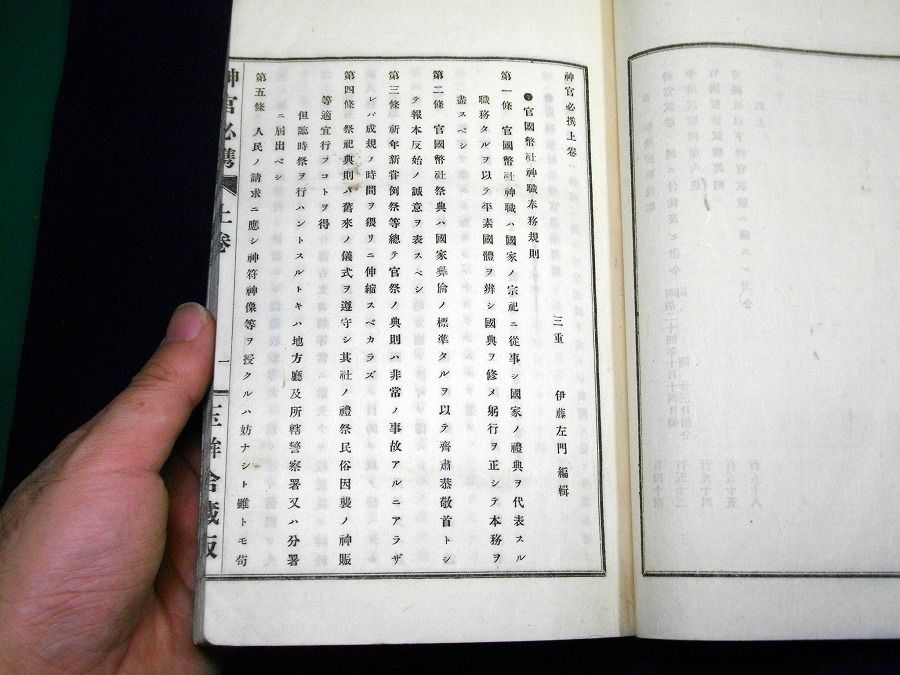 神官必携上卷
三重 伊藤左門 編輯
官國幣社神職本務規則
第一條 官國幣社神職ハ國家ノ宗祀ニ從事シ國家ノ禮典ヲ代表スル
職務タルヲ以テ平素國體ヲ辨シ國典ヲ修メ躬行ヲ正シテ本務ヲ
盡スベシ
第二條 官國幣社祭典ハ國家彝倫ノ標準タルヲ以テ齊肅恭敬首トシ
テ報本反始ノ誠意ヲ表スベシ
第三條 祈年新甞例祭等總テ官祭ノ典則ハ非常ノ事故アルニアラザ
レバ成規ノ時間ヲ猥リニ伸縮スベカラズ
第四條 祭祀典則ハ舊來ノ儀式ヲ遵守シ其社ノ禮祭民俗因襲ノ神賑
等適宜行フコトヲ得
但臨時祭ヲ行ハントスルトキハ地方廳及所轄警察署又ハ分署
ニ屆出ベシ
第五條 人民ノ請求ニ應シ神符神像等ヲ授クルハ妨ナシト雖トモ苟
神官必携 上卷 一 玉鉾舍藏版